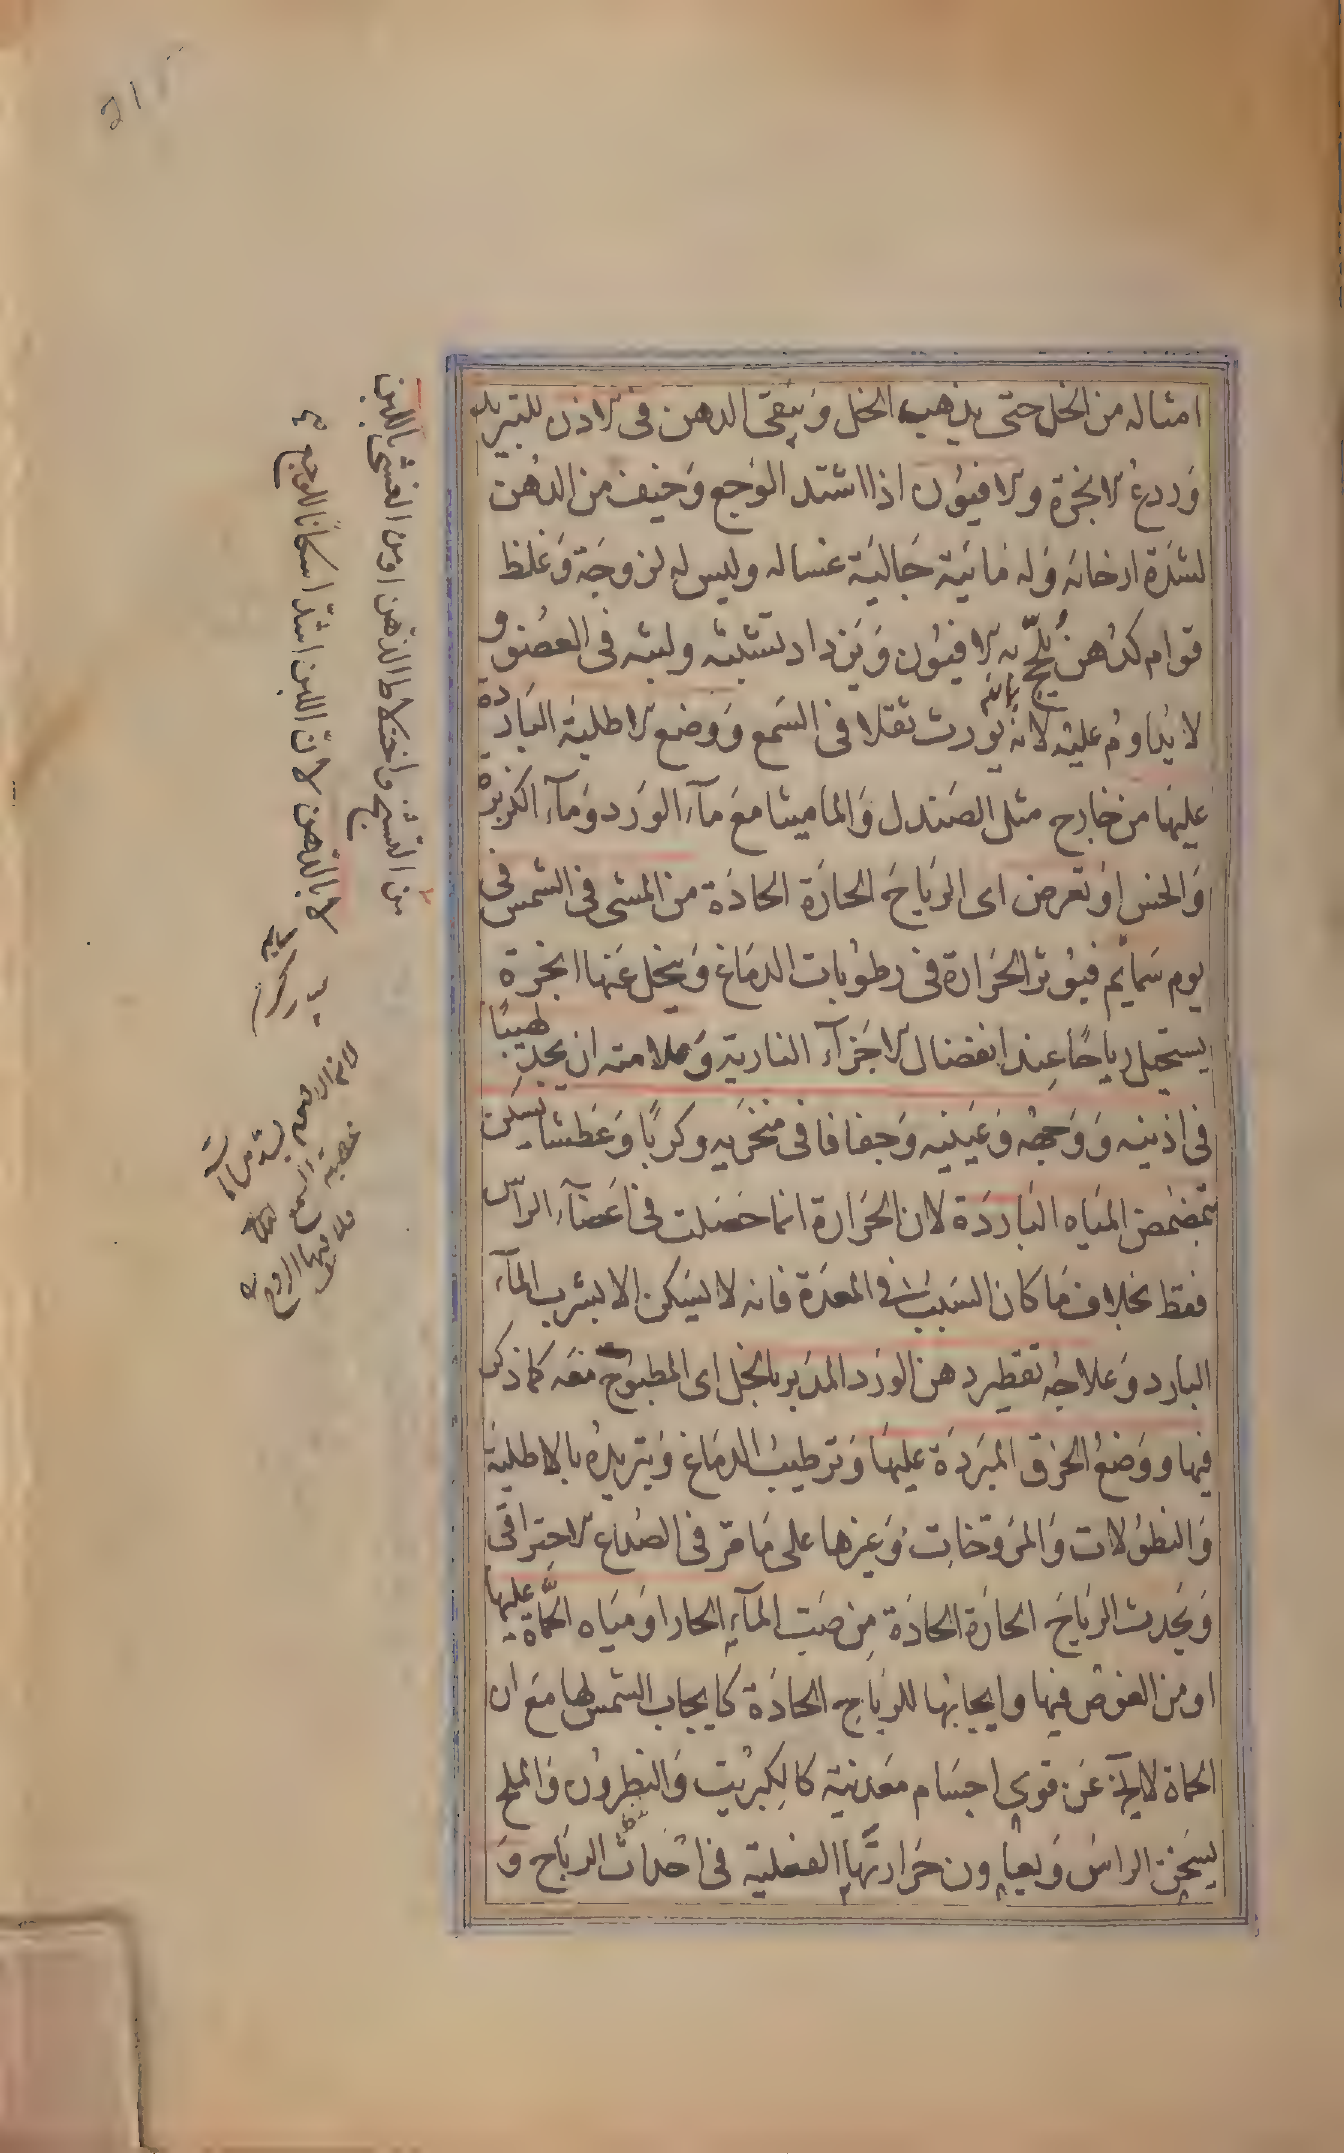 امثاله من الخل حتى يذهب الخل وَيبقى الدهن فى الاذن للتبريد
وَردعُ الابخرة والافيُون اذا اشتد الوَجع وَخيف من الدهُن
لشدَة ارخائه وَله مَائيَة جَاليَة غساله وليس له لزوجَة وَغلظ
قوام كدُهن يلحج به الافيُون وَيَزداد تشبثه ولبثه فى العضو و
لا يُداومُ عليه لانه يورث ثقلا فى السَمع وَوضع الاطليَة البَاردَة
عليهَا من خارج مثل الصَندل وَالماميثا مَع مآء الوَرد وَمآء الكزبرَة
وَالخس اوَ تعرض اى الرَياحَ الحارَة الحادَة من المشى فى الشمس فى
يوم سَمايُم فيُوثر الحَرارة فى رطوُبات الدمَاغ وَينحل عَنها ابخرة
يستحيل رياحًا عِند انفصَال الاجَزآء الناريَة وَعلامته ان يجد لهيبًا
فى اذنيه وَوَجهُه وَعَينيه وَجفافا فى منخرَيه وكربًا وَعَطشا يسكن
بتمضمَض المَياه البَاردَة لان الحَرارة انما حصَلت فى اعَضآء الراس
فقط بخلاف مَا كان السَبب فى المعدَة فانه لا يسَكن الا بشرب المآء
البَارد وَعلاجُه تقطير دهن الورَد المدَبر بالخل اى المطبوُخ مَعه كما ذكر
فيها ووَضعُ الخرَق المبَردَة عليهَا وَترطيبُ الدمَاغ وَتبريدُه بالاطليَة
وَالنطوُلات وَالمرَوخَات وَغيرها على مَا مرَ فى الصُداع الاحتراقى
وَيحَدث الرَياحَ الحارَة الحادَة مِن صَب المآء الحار اوَ ميَاه الحمَّاة عليها
او من الغوَص فيها وايجابهَا للريَاح الحادَة كايجاب الشمس لها مَع ان
الحماة لا يخ عَن قوى اجسَام معَدنيَة كالكبرُيت وَالنطروُن وَالملح
يسَخن الراسَ وَيعاون حَرارتَها الفعلية فى احَداث الريَاح وَ
من التشنج واختلاط الذهن او من الغشى باللبن